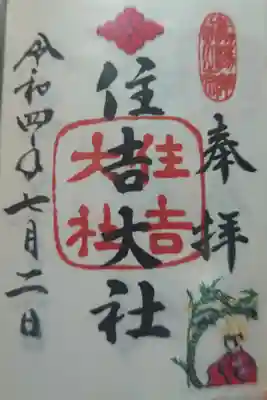 奉拝
住吉大社
住吉
大社
令和四年七月二日